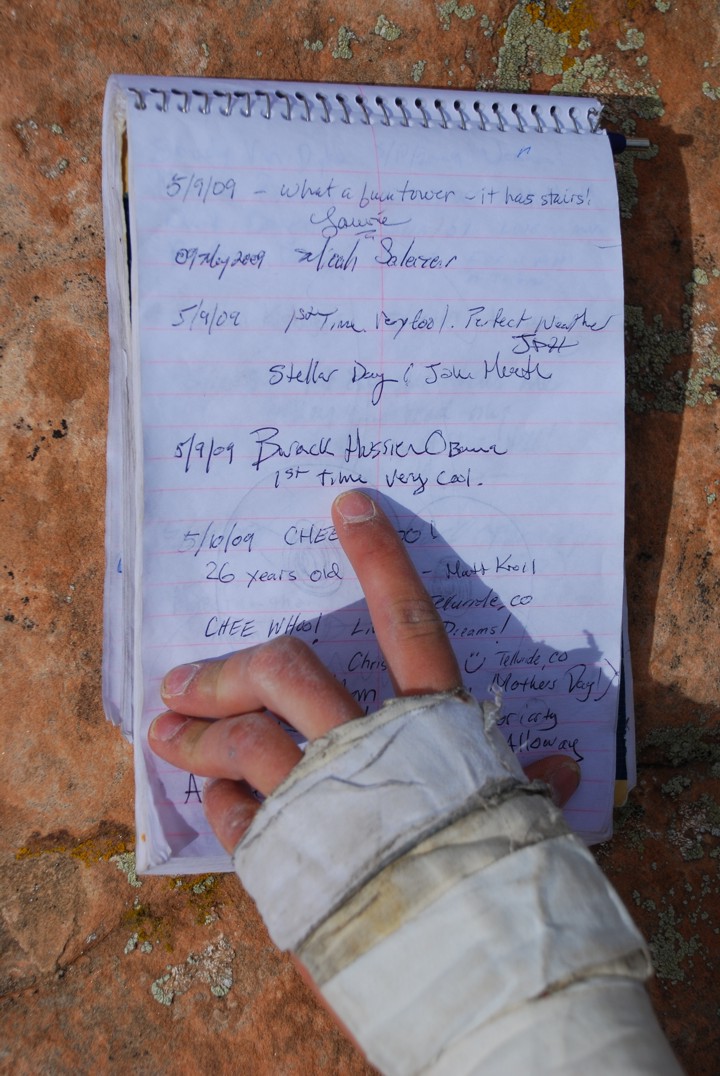 5/9/09 - what a fun tower - it has stairs!
09 May 2009 Salazar
5/9/09 1st Time. Very Cool. Perfect Weather
Stellar Day! John
5/9/09 Barack Hussien Obama
1st time very cool.
5/10/09 CHEE !
26 years old - Matt Kroll
Telluride, CO
CHEE WHOO! Dreams!
Chris Telluride, CO
Mothers Day!)
Alloway
A